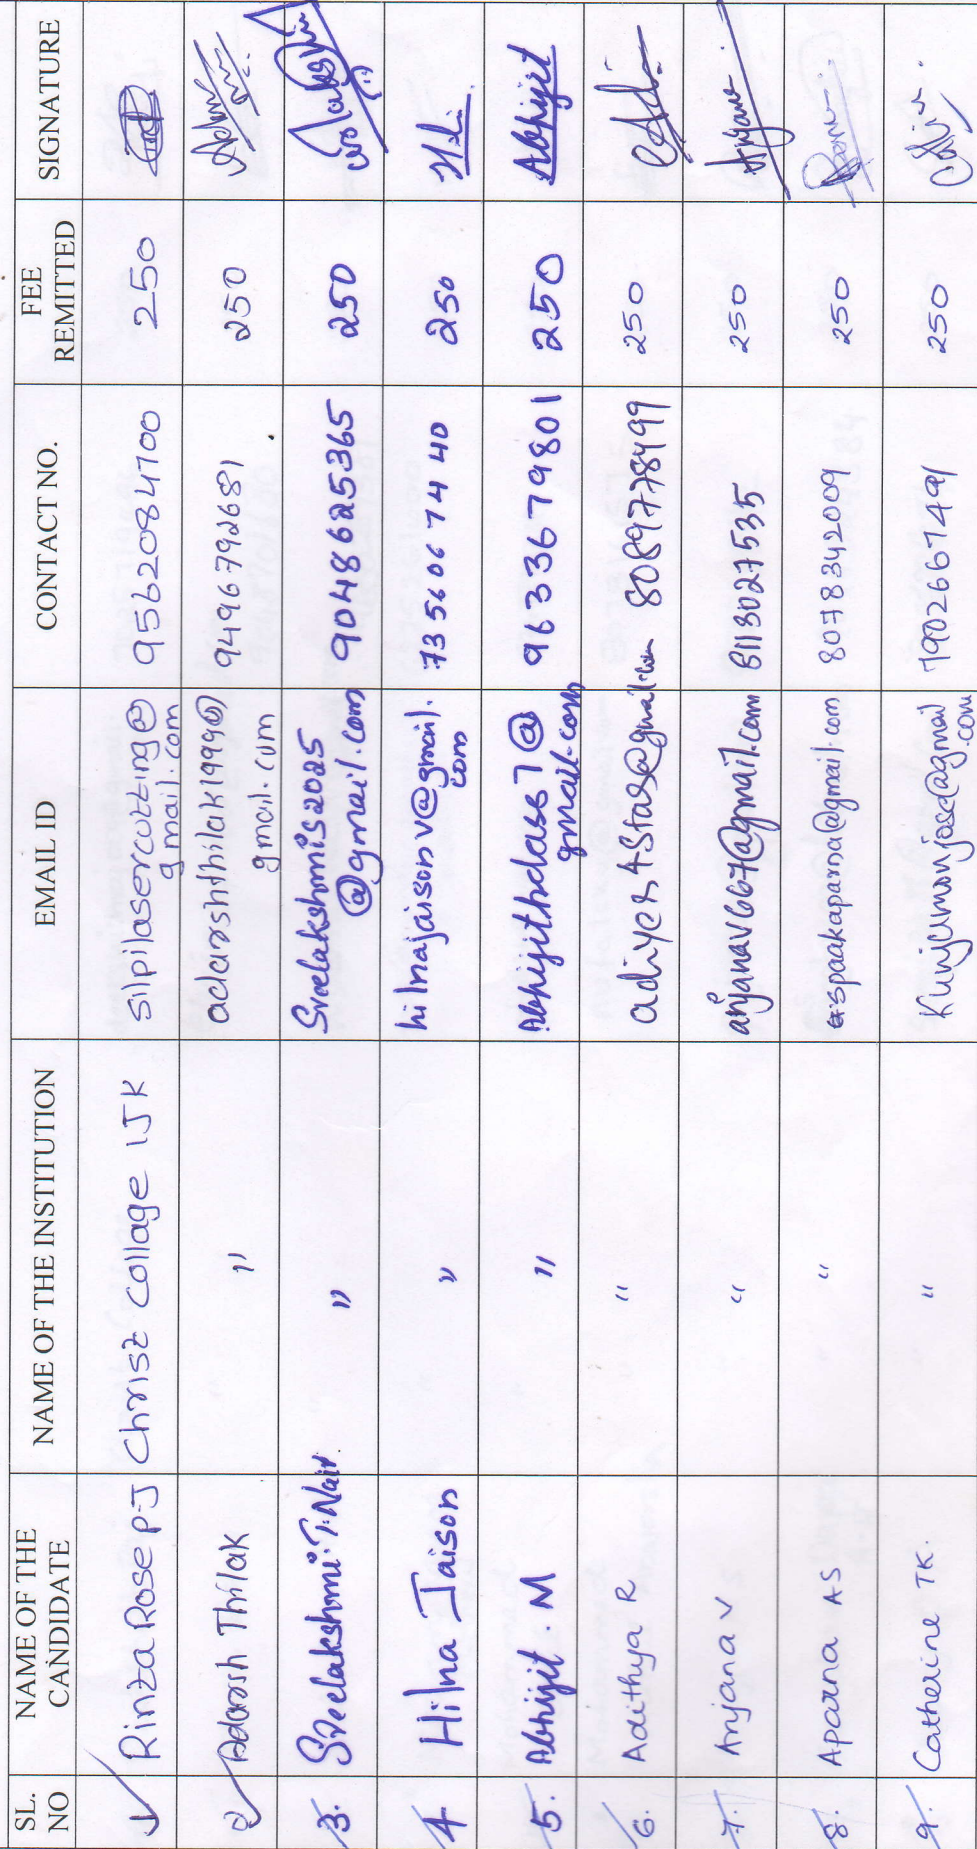 SL. NO NAME OF THE CANDIDATE NAME OF THE INSTITUTION EMAIL ID CONTACT NO. FEE REMITTED SIGNATURE
1 Rinza Rose P.J Christ Collage IJK silpilasercutting@gmail.com 9562084700 250
2 Adarsh Thilak " adarshthilak1999@gmail.com 9496792681 250
3. Sreelakshmi.T.Nair. " Sreelakshmis2025@gmail.com 9048625365 250
4 Hilna Jaison " hilnajaisonv@gmail.com 7356067440 250
5. Abhijit . M " Abhijithdas87@gmail.com 9633679801 250 Abhijit
6. Adithya R " 8089778499 250
7. Anjana V " anjanaV667@gmail.com 8113027535 250 Anjana
8. Aparna AS " aspaakaparna@gmail.com 8078342009 250
9. Catherine TK. " Kunjumonjose@gmail.com 7902667491 250